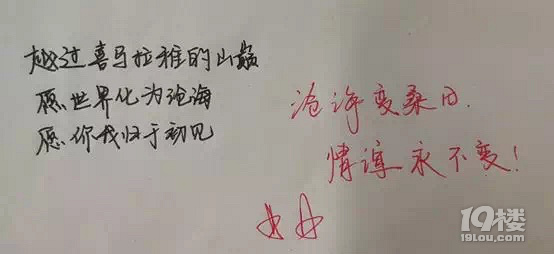 越过喜马拉雅的山巅
愿世界化为沧海
愿你我归于初见
沧海变桑田.
情谊永不变!
19楼
19lou.com